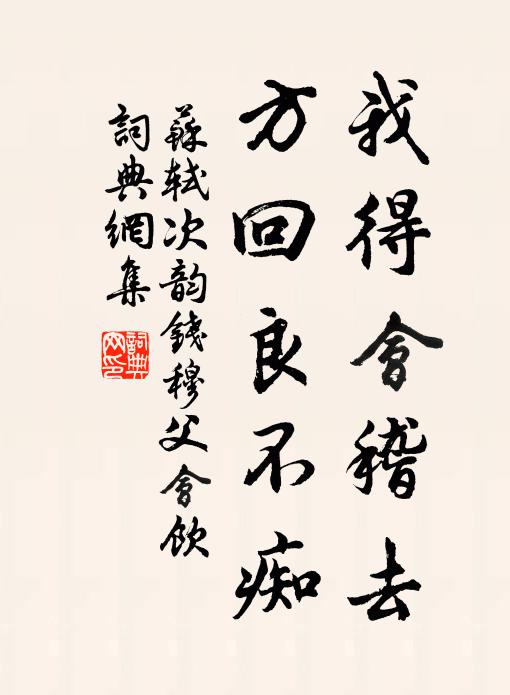 我得會稽去
方回良不痴
蘇軾次韵錢穆父會飲
詞典網集
詞典
网印